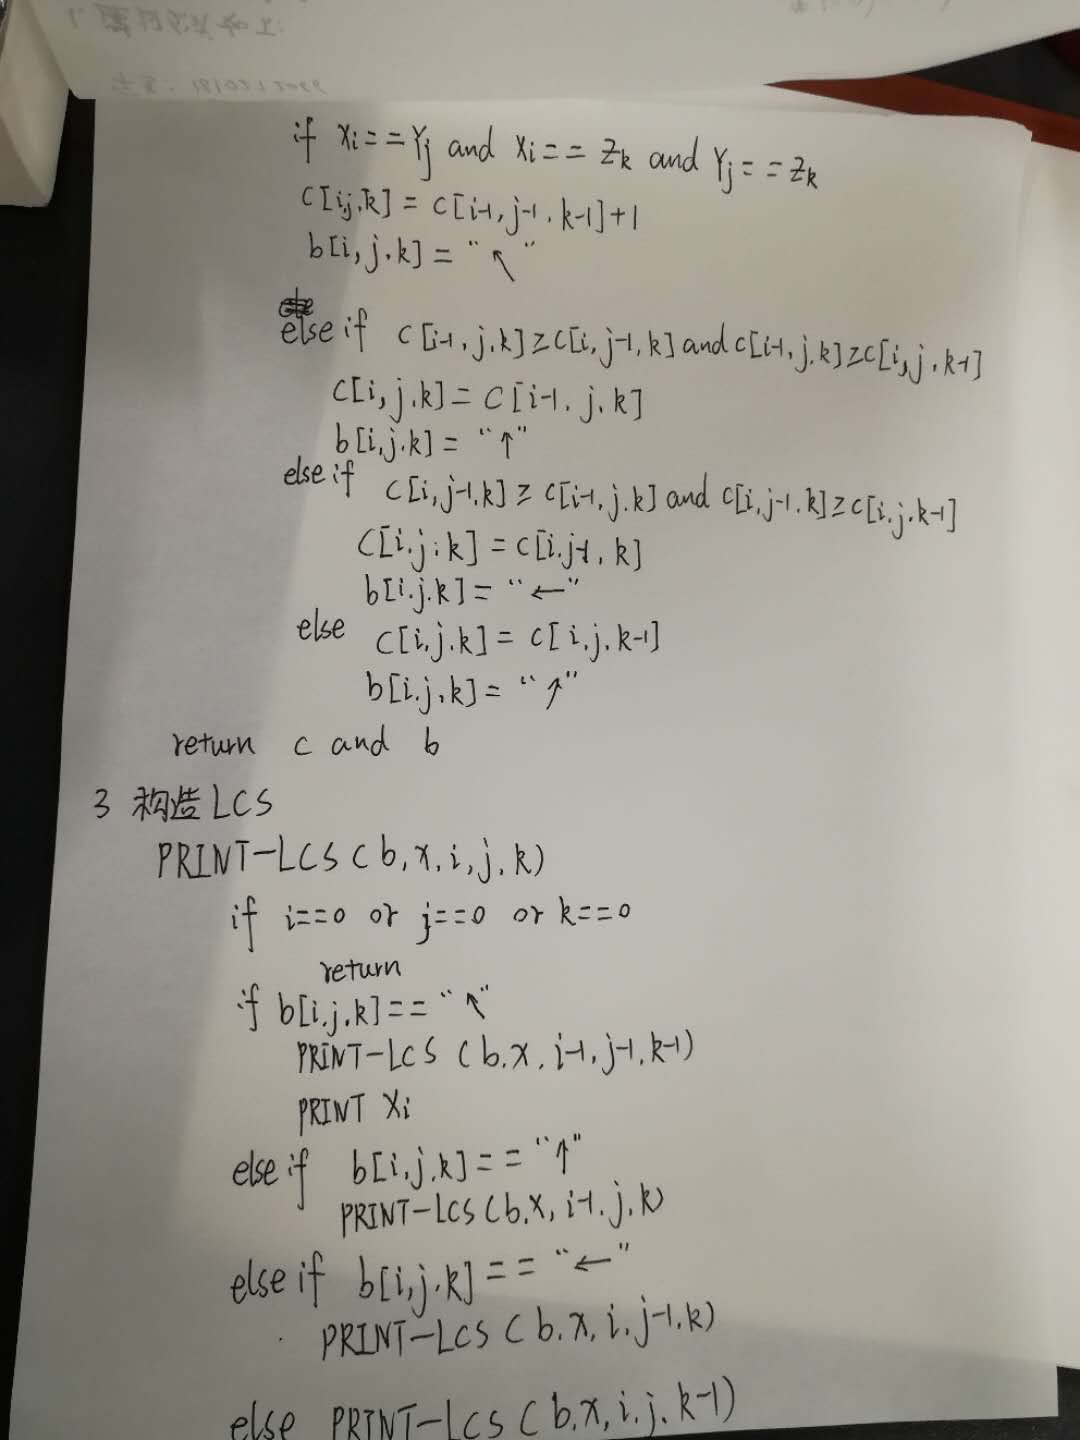 if Xi==Yj and Xi==Zk and Yj==Zk
c[i,j,k] = c[i-1,j-1,k-1]+1
b[i,j,k] = "↖"
else if c[i-1,j,k]≥c[i,j-1,k] and c[i-1,j,k]≥c[i,j,k-1]
c[i,j,k] = c[i-1,j,k]
b[i,j,k] = "↑"
else if c[i,j-1,k] ≥ c[i-1,j,k] and c[i,j-1,k]≥c[i,j,k-1]
c[i,j,k] = c[i,j-1,k]
b[i,j,k] = "←"
else c[i,j,k] = c[i,j,k-1]
b[i,j,k] = "↗"
return c and b
3 构造LCS
PRINT-LCS(b,x,i,j,k)
if i==0 or j==0 or k==0
return
if b[i,j,k]== "↖"
PRINT-LCS(b,x,i-1,j-1,k-1)
PRINT Xi
else if b[i,j,k]== "↑"
PRINT-LCS(b,x,i-1,j,k)
else if b[i,j,k]== "←"
PRINT-LCS(b,x,i,j-1,k)
else PRINT-LCS(b,x,i,j,k-1)